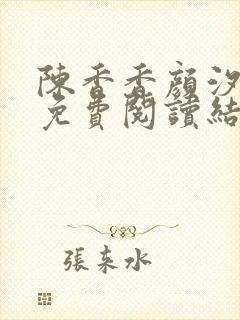 陳香香顏汐
免費閱讀結
張未水